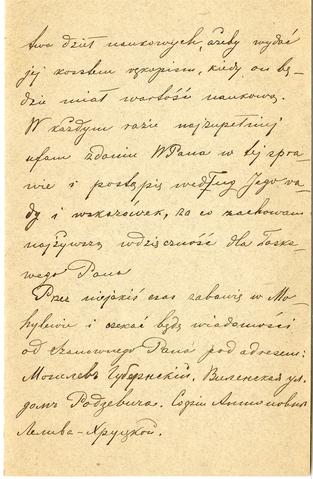 twa dzieł naukowych, ażeby wydać
jej kosztem rękopism, kiedy on bę-
dzie miał wartość naukową.
W każdym razie najzupełniej
ufam zdaniu WPana w tej spra-
wie i postąpię według Jego ra-
dy i wskazówek, za co zachowam
najżywszą wdzięczność dla Łaska-
wego Pana
Przez niejakiś czas zabawię w Mo-
hylewie i czekać będę wiadomości
od Szanownego Pana pod adresem:
Могилевъ Губернскій. Виленская ул.
домъ Родзевича. Софіи Антоновнѣ
Лелива-Хруцкой.